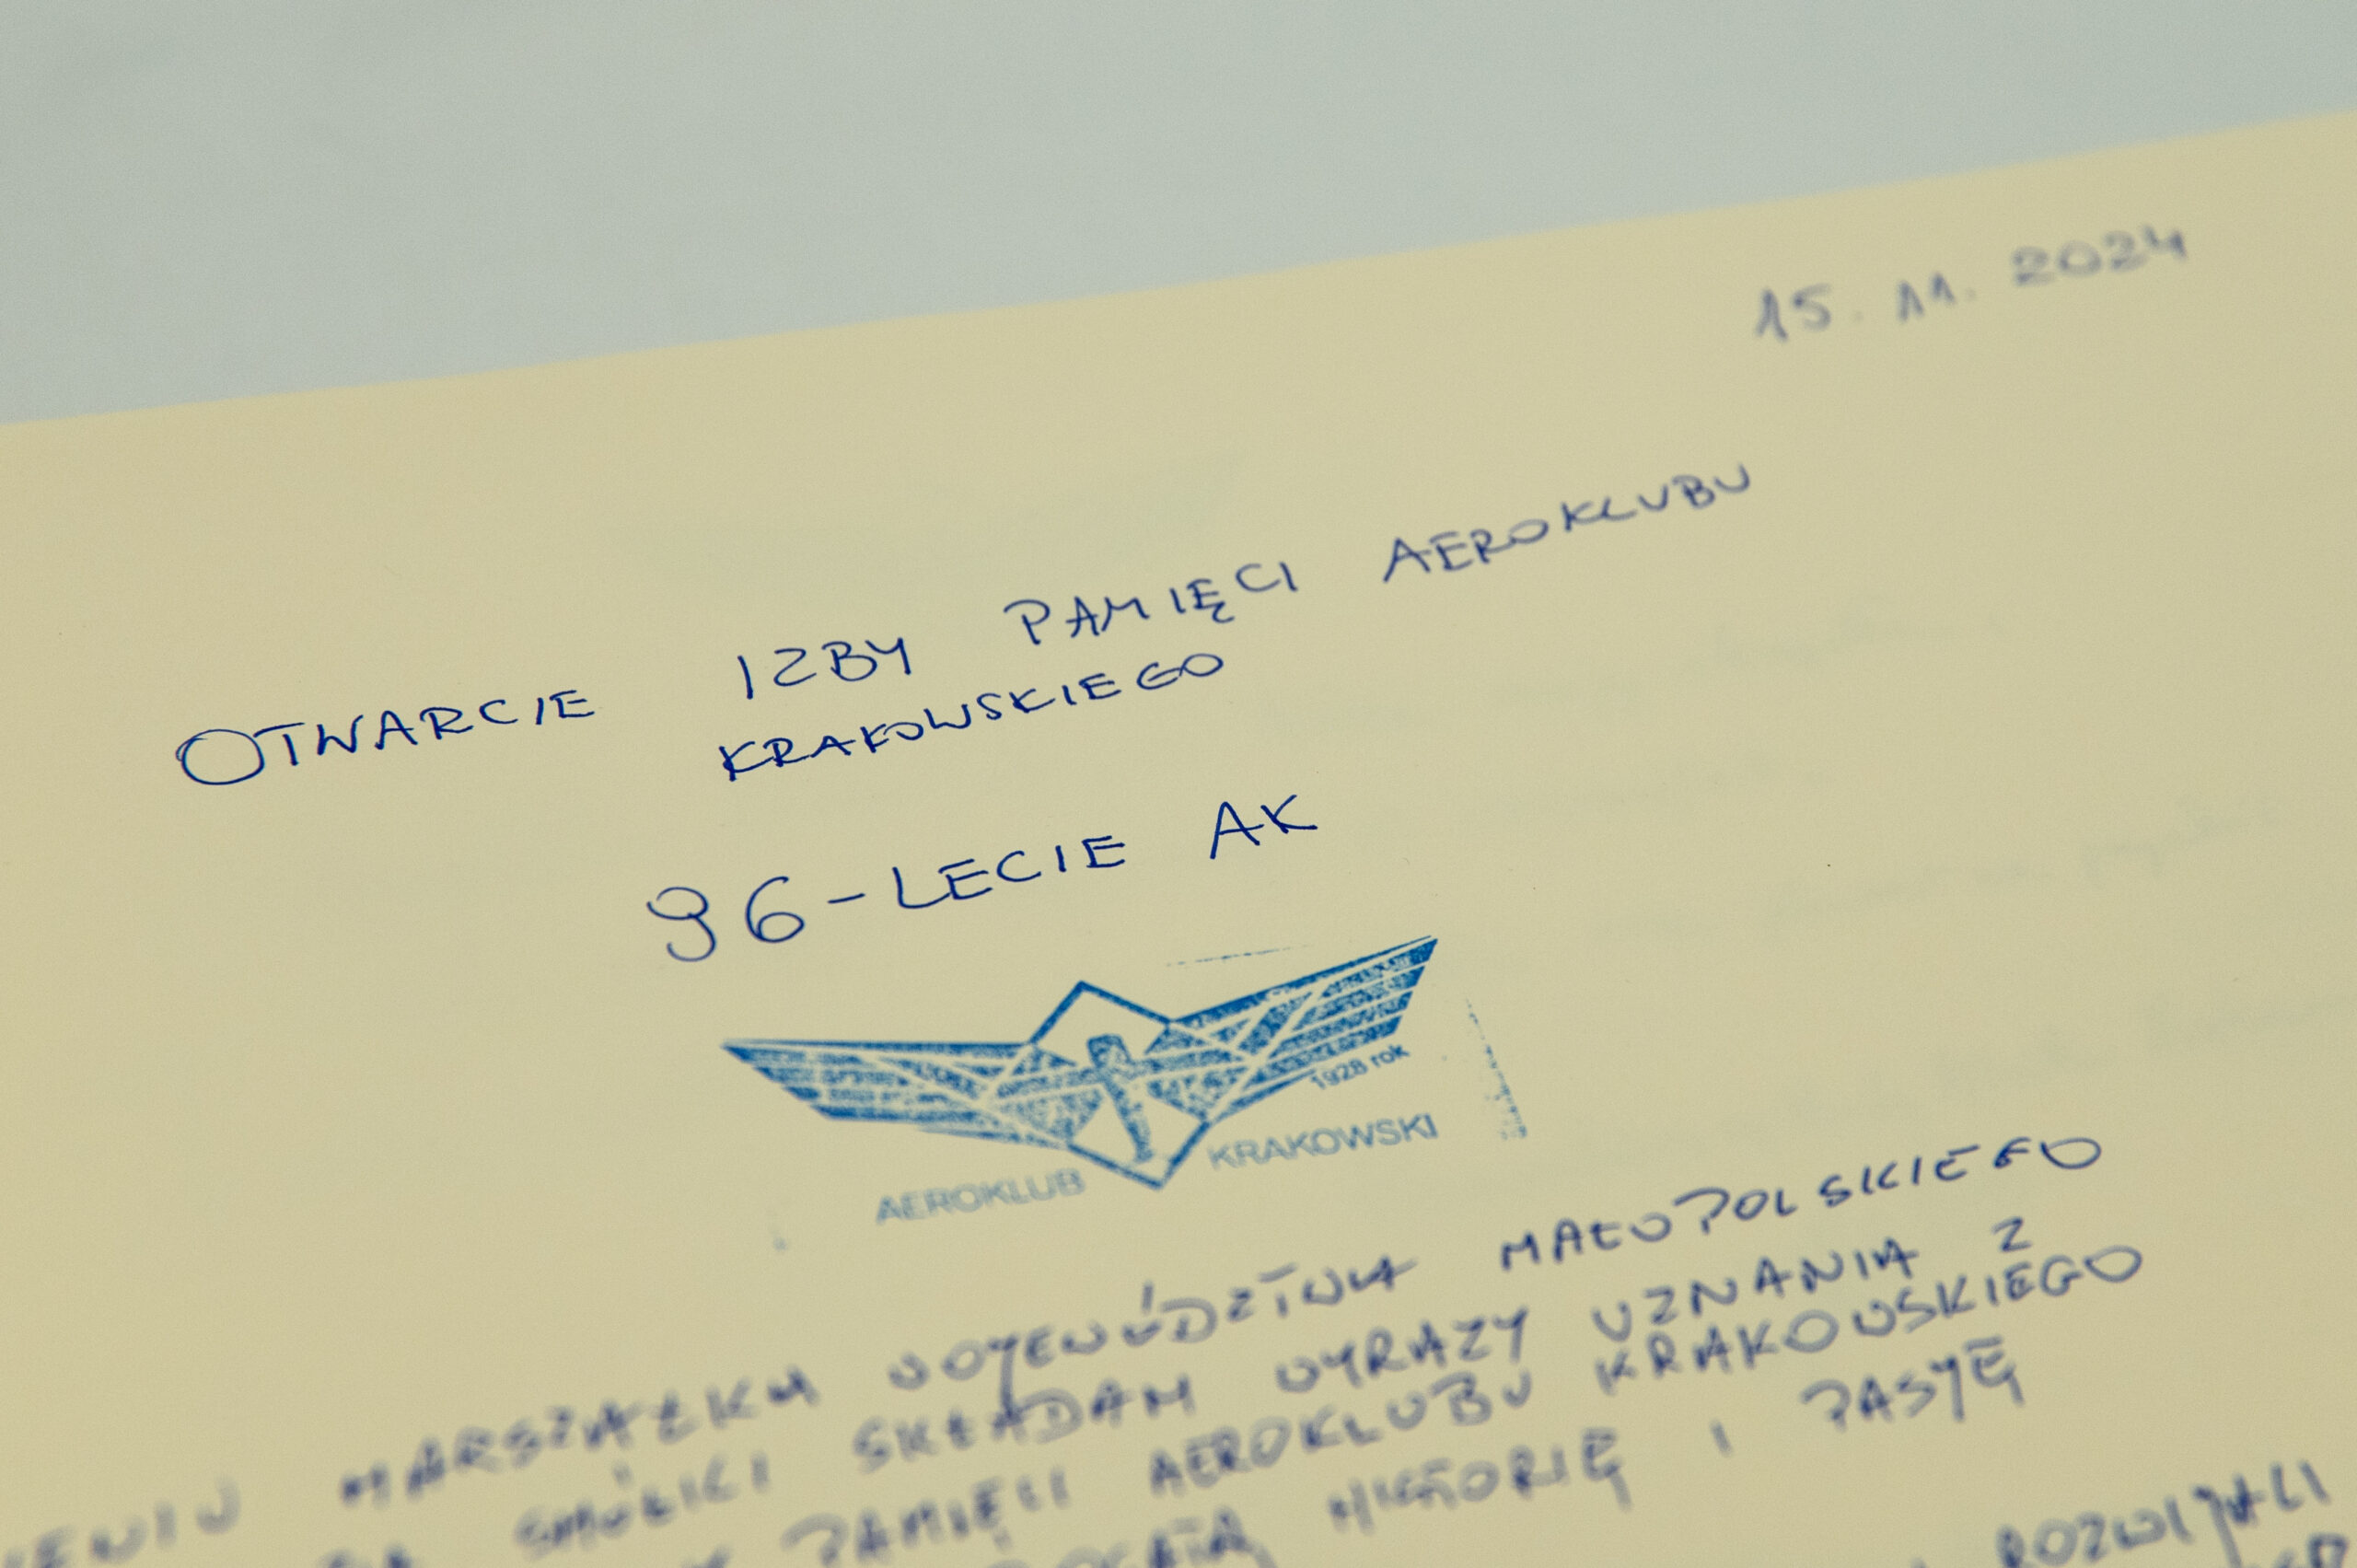 15. 11. 2024
OTWARCIE IZBY PAMIĘCI AEROKLUBU
KRAKOWSKIEGO
96-LECIE AK
1928 rok
AEROKLUB KRAKOWSKI
MARSZAŁKA WOJEWÓDZTWA MAŁOPOLSKIEGO
SMÓŁKI SKŁADAM WYRAZY UZNANIA Z
PAMIĘCI AEROKLUBU KRAKOWSKIEGO
HISTORIĘ I PASJĘ
ROZWIJALI